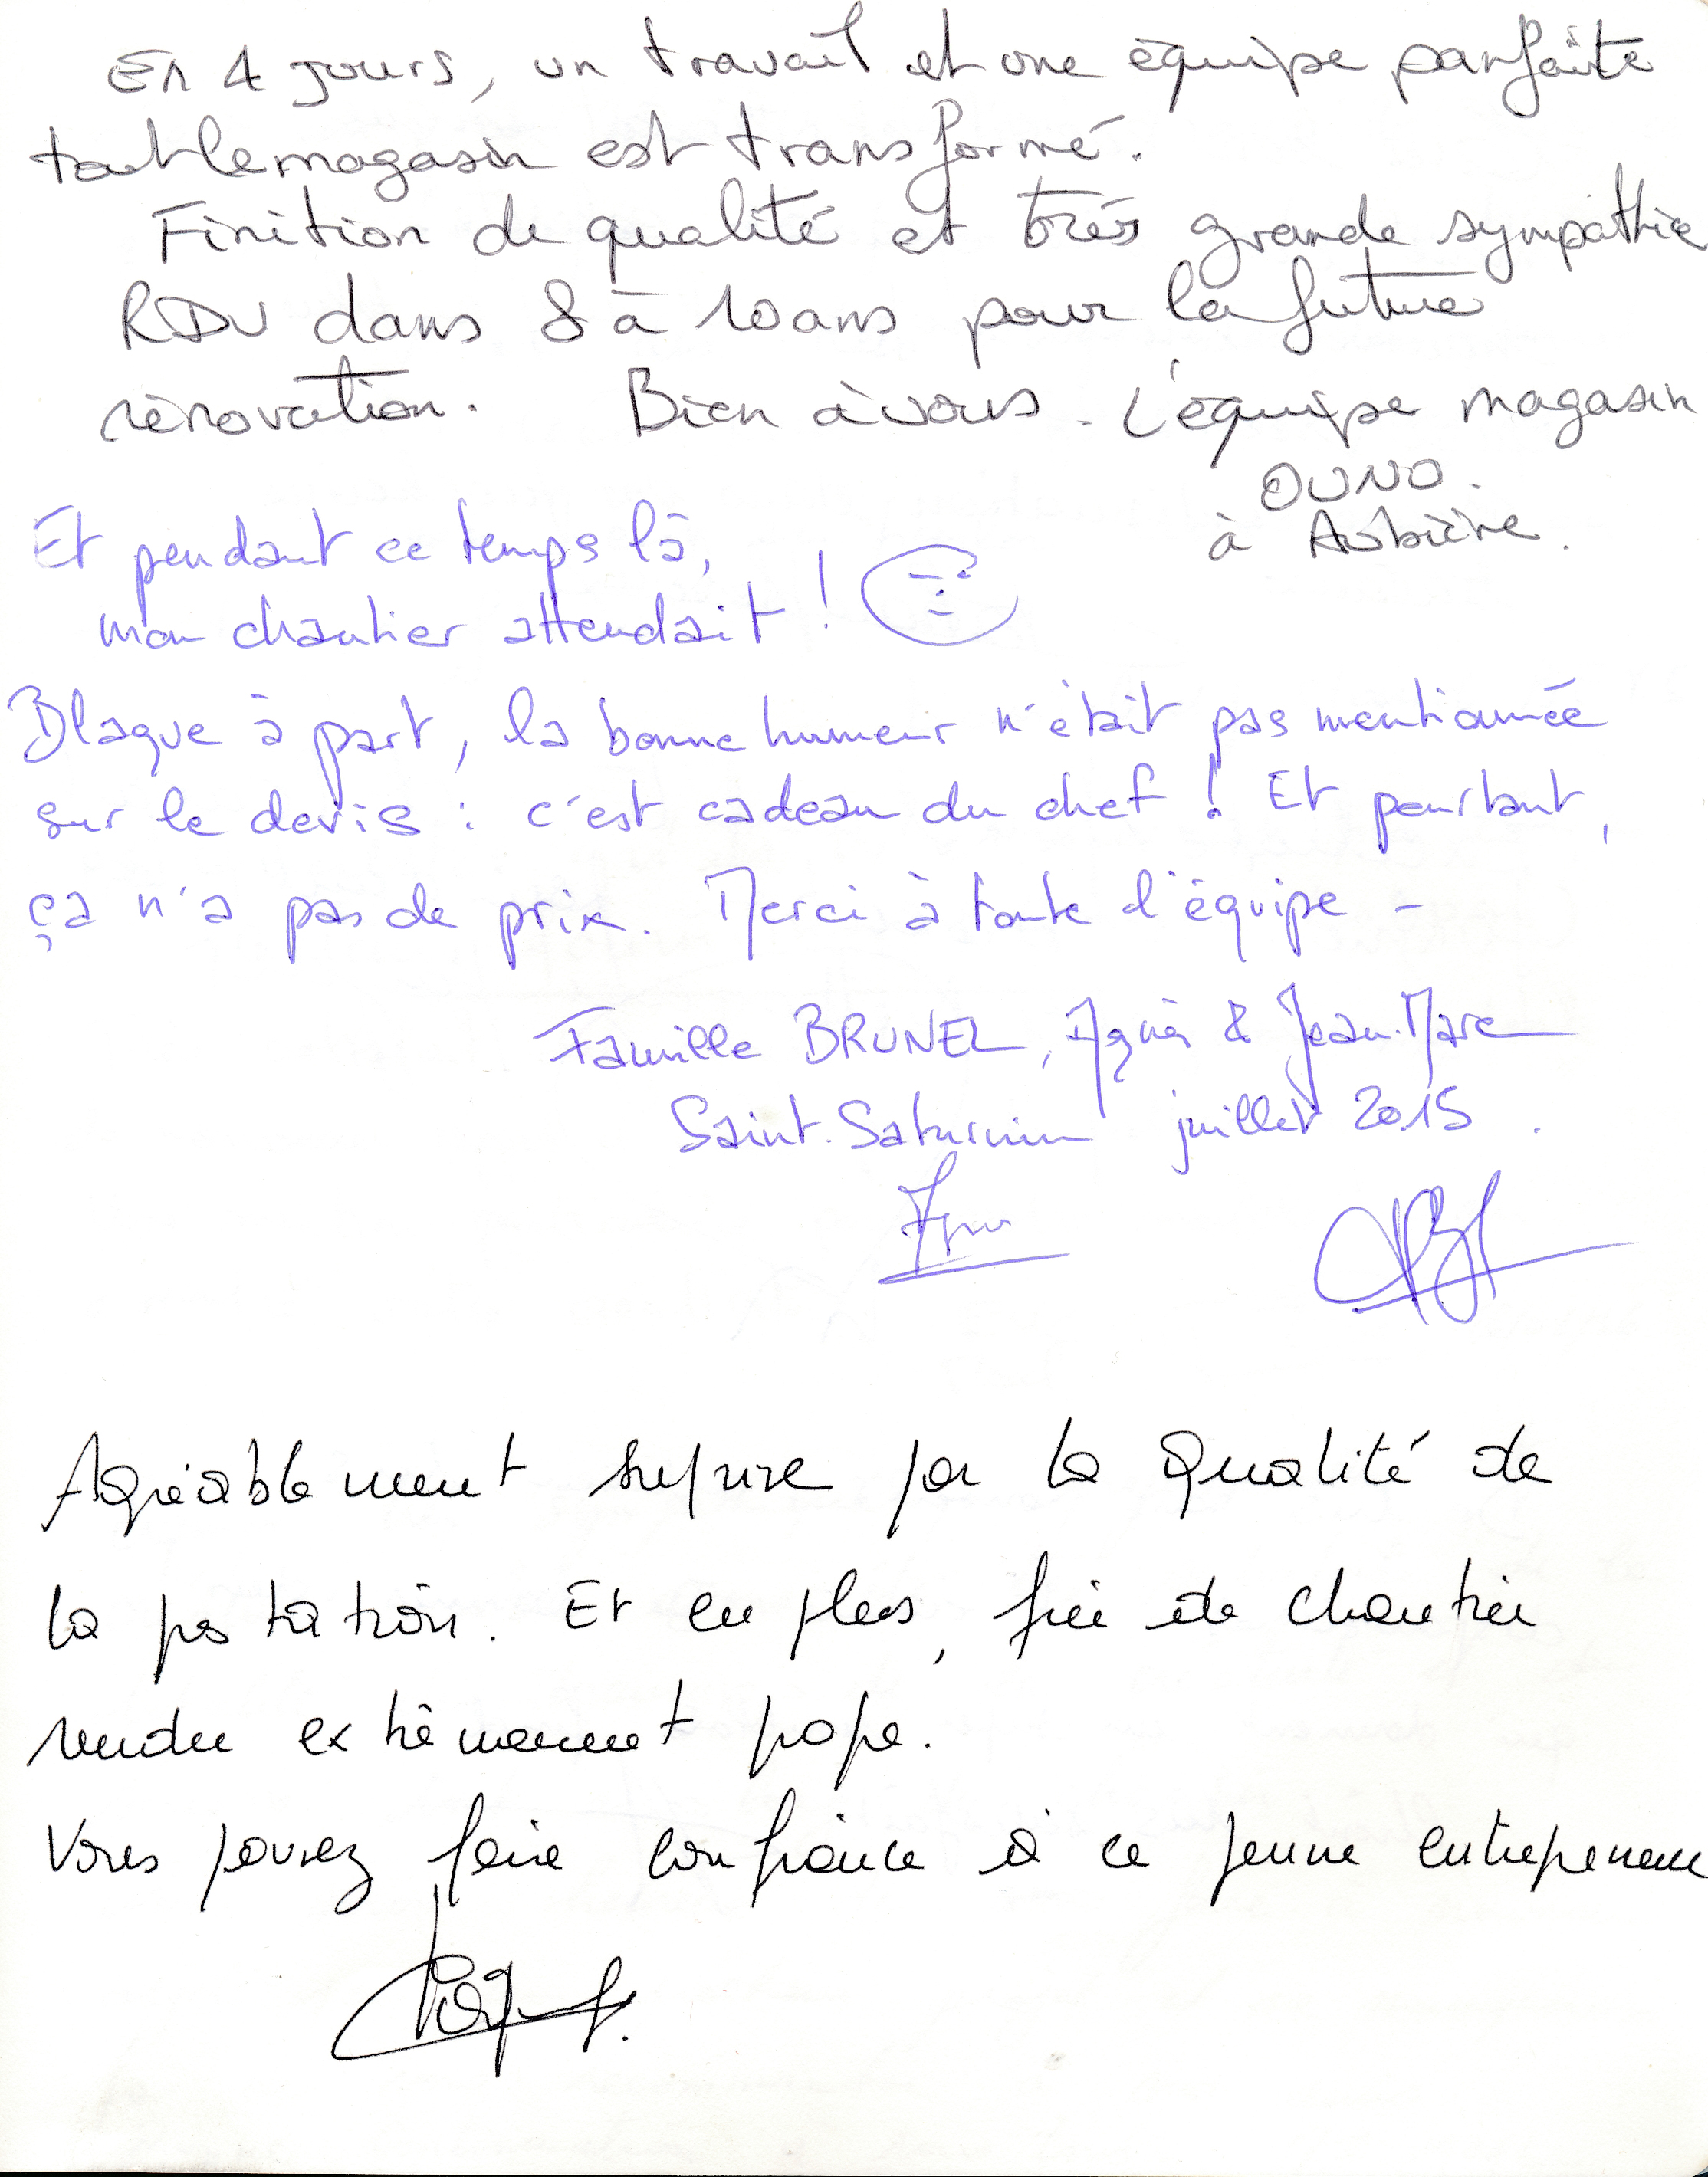 En 4 jours, un travail et une équipe parfaite
tout le magasin est transformé.
Finition de qualité et très grande sympathie
RDV dans 8 à 10 ans pour la future
rénovation. Bien à vous. L'équipe magasin
OUNO.
à Aubière.
Et pendant ce temps là,
mon chantier attendait !
Blague à part, la bonne humeur n'était pas mentionnée
sur le devis : c'est cadeau du chef ! Et pourtant,
ça n'a pas de prix. Merci à toute l'équipe -
Famille BRUNEL, Agnès & Jean-Marc
Saint-Saturnin juillet 2015.
Agréablement surprise par la qualité de
la prestation. Et en plus, fin de chantier
rendu extrêmement propre.
Vous pouvez faire confiance à ce jeune entrepreneur